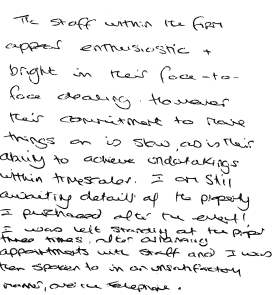 The staff within the firm
appear enthusiastic +
bright in their face-to-
face dealing. However
their commitment to move
things on is slow, as is their
ability to achieve undertakings
within timescales. I am still
awaiting details of the property
I purchased after the event!
I was left standing at the proper
times, after arranging
appointments with staff and I was
then spoken to in an unsatisfactory
manner, over the telephone.